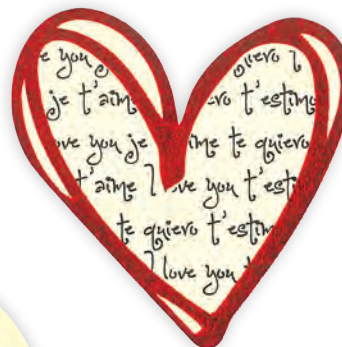 e you quiero I
je t'aime t'estim
ove you je ime te quiero
t'aime I ve you t'es
te quiero t'estim
I love you